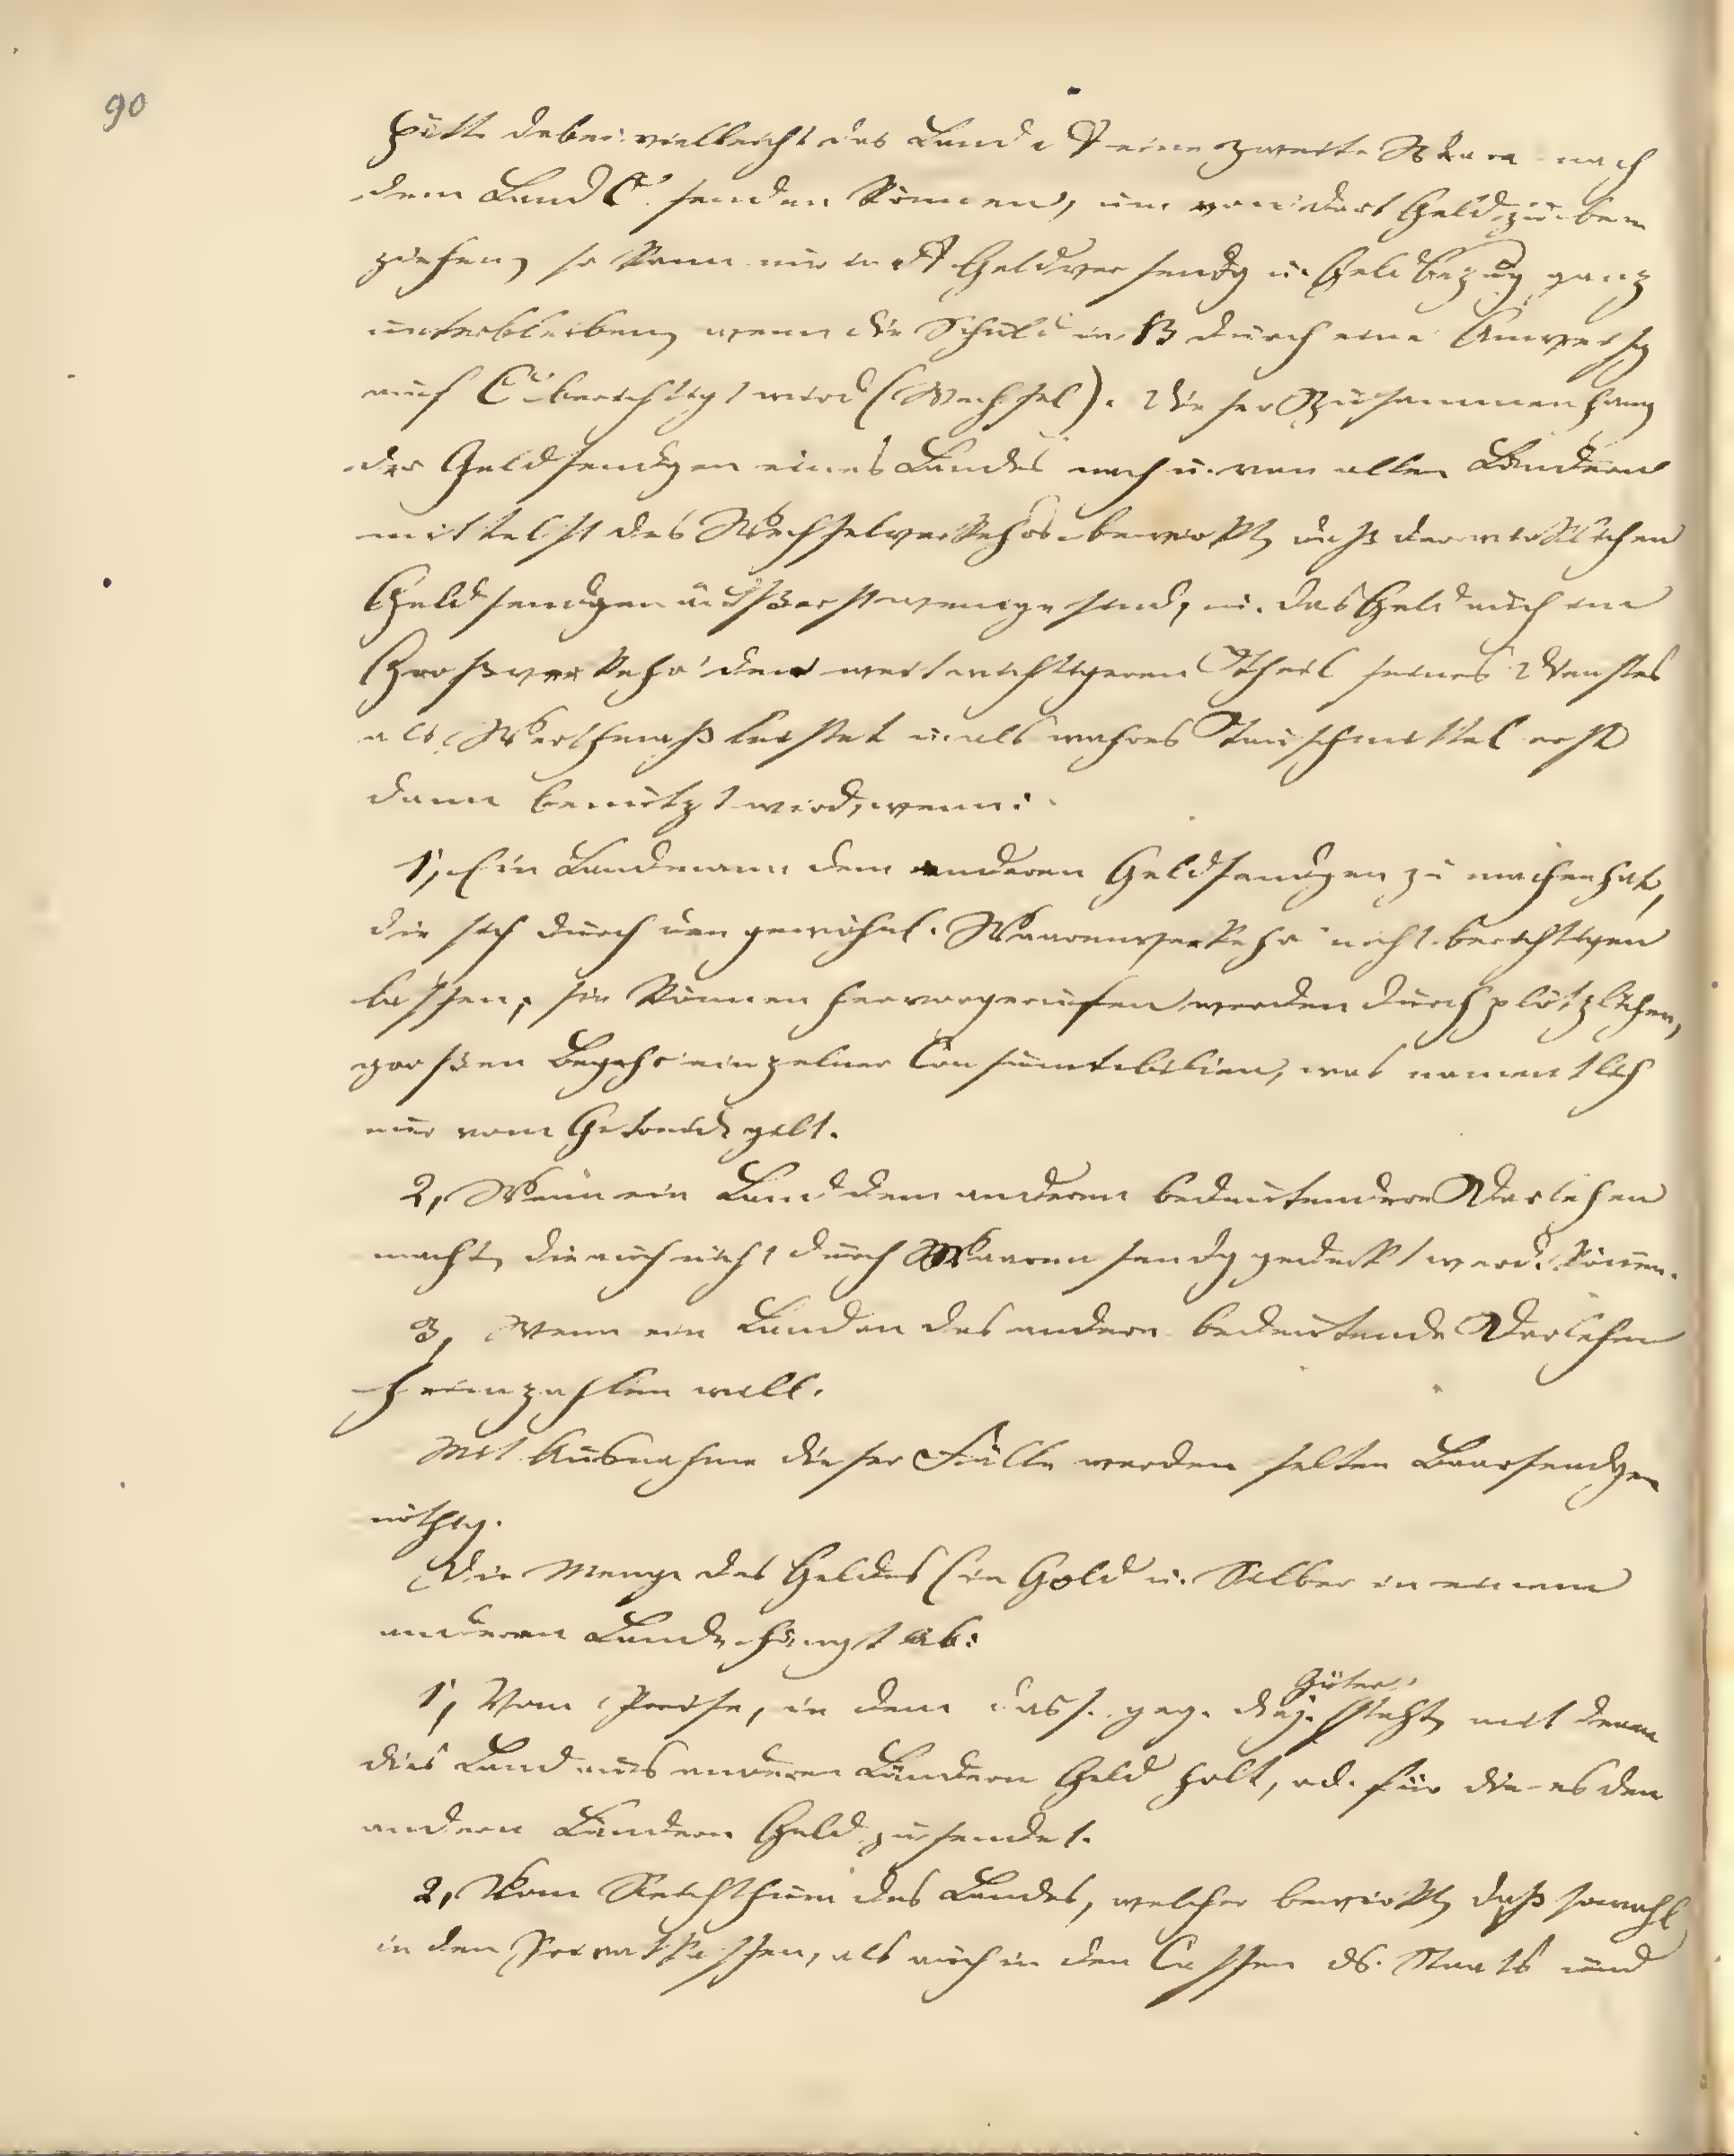 90
Hätte dabei vielleicht das Land A eine zweite Waare nach
dem Land C senden können, um von dort Geld zu be
ziehen, so kann nun in A Geldversendg u. Geldbezug ganz
unterbleiben, wenn die Schuld in B durch eine Anweisg
auf C berichtigt wird (Wechsel). Dieser Zusammenhang
der Geldsendgen eines Landes nach u. von allen Ländern
mittelst des Wechselverkehrs bewirkt, daß der wirklichen
Geldsendgen äußerst wenige sind, u. das Geld auch im
Großverkehr den weit wichtigeren Theil seines Dienstes
als Werthmaß leistet u. als wahres Tauschmittel erst
dann benützt wird, wenn:
1, Ein Landmann dem anderen Geldsendgen zu machen hat,
die sich durch den gewöhnl. Waarenverkehr nicht berichtigen
lassen; sie können hervorgerufen werden durch plötzlichen,
großen Begehr einzelner Consumtibilien, was namentlich
nur vom Getreide gilt.
2, Wenn ein Land dem anderen bedeutendere Darlehen
macht, die auch nicht durch Waarensendg gedeckt werd. können.
3, Wenn ein Land an das andere bedeutende Darlehen
heimzahlen will.
Mit Ausnahme dieser Fälle werden selten Baarsendgen
nöthig.
Die Menge des Geldes (in Gold u. Silber in einem
anderen Lande hängt ab:
1, Vom Preise, in dem dass. geg. diej. Güter steht, mit denen
dies Land aus anderen Ländern Geld holt, od. für die es den
andern Ländern Geld zusendet.
2, Vom Reichthum des Landes, welcher bewirkt, daß sowohl
in den Privatkassen, als auch in den Cassen ds. Staats und